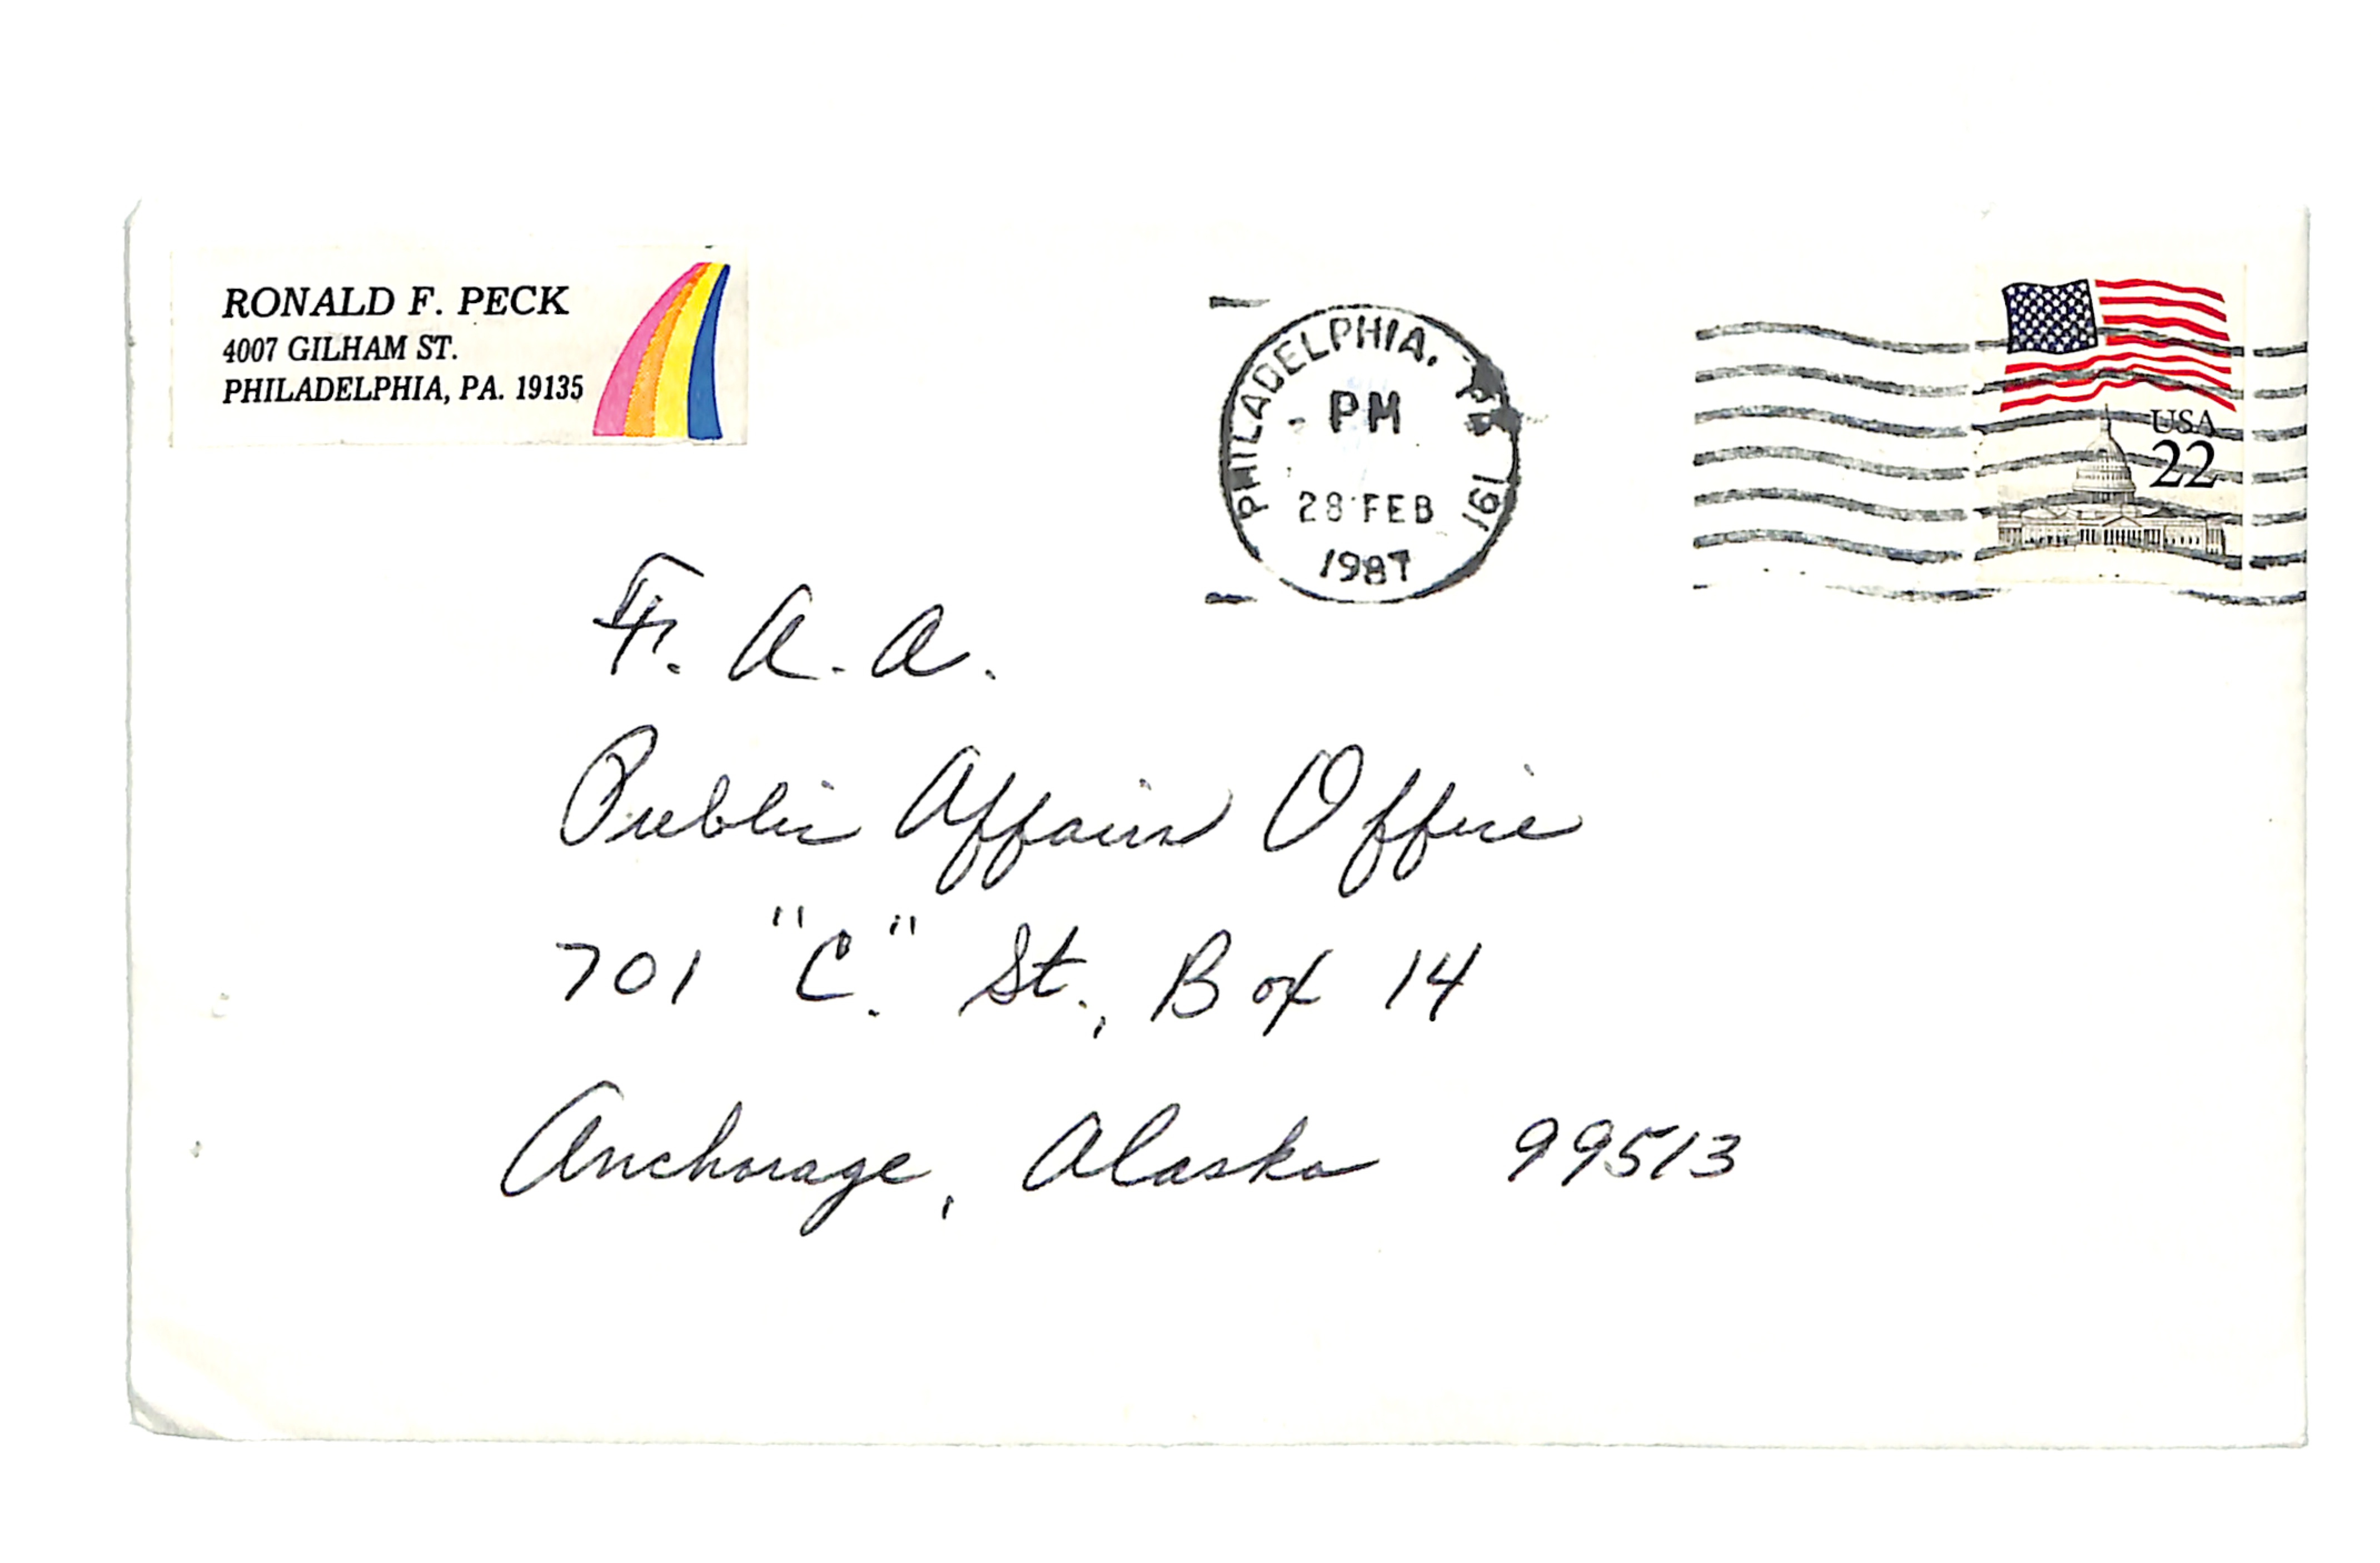 RONALD F. PECK
4007 GILHAM ST.
PHILADELPHIA, PA. 19135
PHILADELPHIA, 191
PM
28 FEB
1987
USA
22
F. A. A.
Public Affairs Office
701 "C." St., Box 14
Anchorage, Alaska 99513